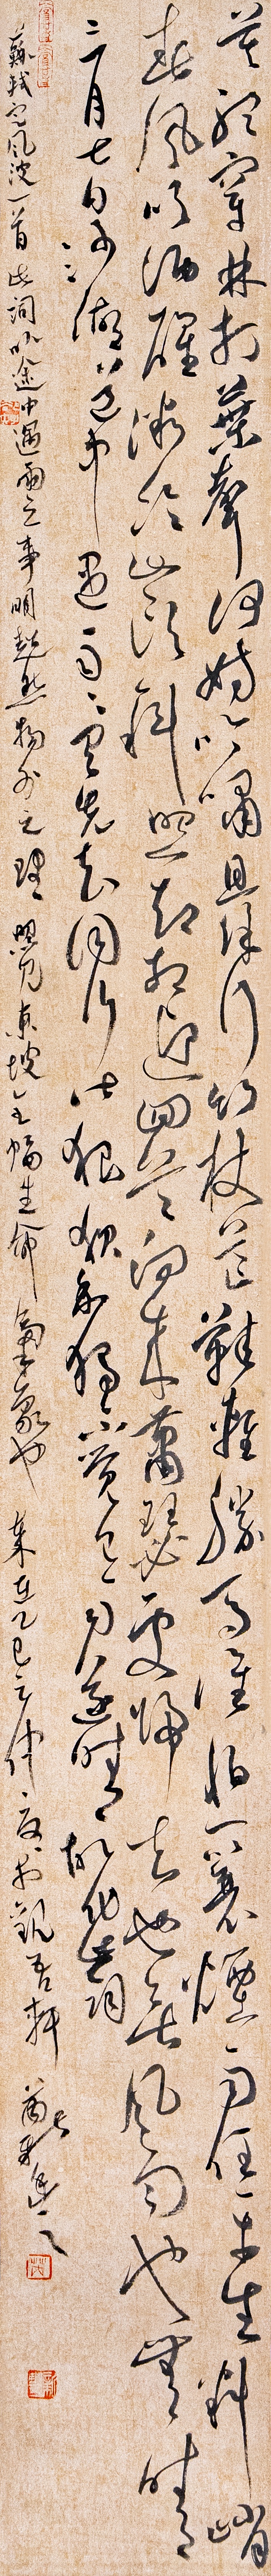 莫聽穿林打葉聲何妨吟嘯且徐行竹杖芒鞋輕勝馬誰怕一蓑煙雨任平生料峭
春風吹酒醒微冷山頭斜照却相迎回首向來蕭瑟處歸去也無風雨也無晴
三月七日沙湖道中遇雨雨具先去同行皆狼狽余獨不覺已而遂晴故作此詞
蘇軾定風波一首此詞以途中遇雨之事明超然物外之理照見東坡全幅生命氣象也歲在乙巳之仲夏於觀吾軒